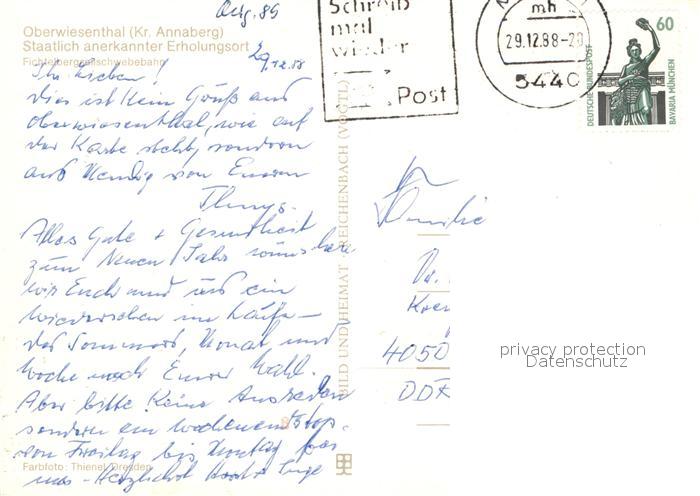 Oberwiesenthal (Kr. Annaberg)
Staatlich anerkannter Erholungsort
Fichtelbergschwebebahn
29.12.88
Ihr Lieben!
Dies ist kein Gruß aus
Oberwiesenthal, wie auf
der Karte steht, sondern
aus Mendig von Euren
Alles Gute + Gesundheit
zum Neuen Jahr wünschen
wir Euch und uns ein
Wiedersehen im Laufe
des Sommers, Monat und
Woche nach Eurer Wahl.
Aber bitte keine Ausreden
sondern ein
von Freitag bis Montag bei
uns - Herzlichst Horst + Inge
Farbfoto: Thienel, Dresden
BILD UND HEIMAT · REICHENBACH (VOGTL)
Schreib
mal
wieder
Post
mh
29.12.88-20
5440
60
DEUTSCHE BUNDESPOST
BAVARIA MÜNCHEN
Familie
Dr.
4050
DDR
privacy protection
Datenschutz